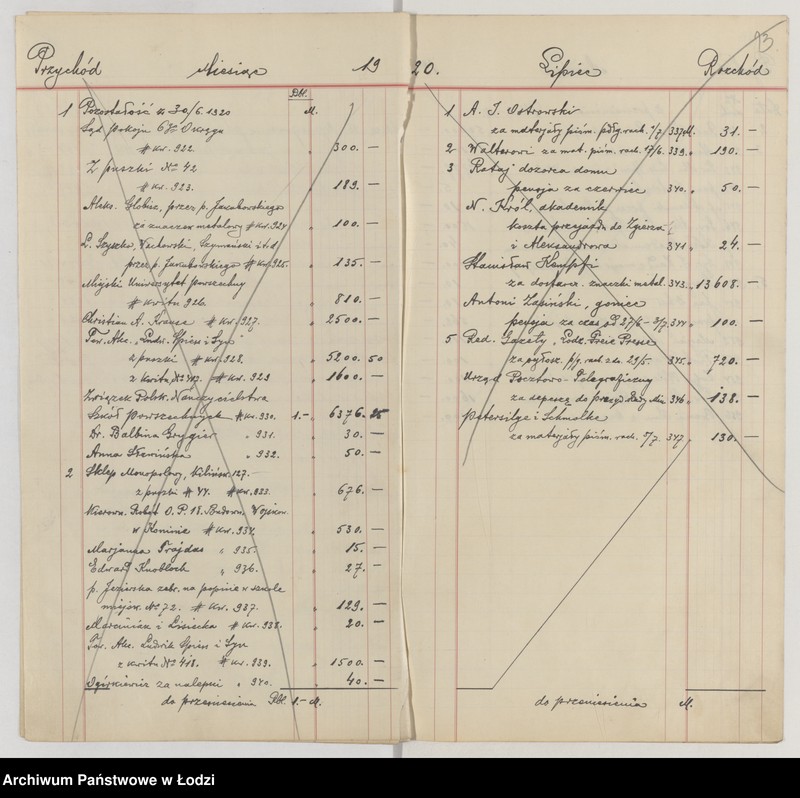 Przychód Miesiąc 19
Rbl.
1 Pozostałość z 30/6. 1920 M.
Sąd Pokoju 6go Okręgu
# kw. 922. 300. —
Z puszki No 42
# kw. 923. 189. —
Aleks. Globisz, przez p. Jakubowskiego
za znaczek metalowy # kw. 924 100. —
L. Szyszko, Wachowski, Szymański i t.d.
przez p. Jakubowskiego # kw. 925. 135. —
Miejski Uniwersytet Powszechny
# kwitu 926. 810. —
Christian A. Krause # kw. 927. 2500. —
Tow. Akc. "Ludw. Spiess i Syn"
z puszki # kw. 928. 5200. 50
z kwitu No 417. # kw. 929 1600. —
Związek Polsk. Nauczycielstwa
Szkół Powszechnych # kw. 930. 1.— 6376. 25
Dr. Balbina Grygier " 931. 30. —
Anna Sławińska " 932. 50. —
2 Sklep Monopolowy, Kilińsk. 127. —
z puszki # 44. # kw. 933. 676. —
Kierown. Robót O. P. 18. Budown. Wojskow.
w Koninie # kw. 934. 530. —
Marjanna Trojdas " 935. 15. —
Edward Knobloch " 936. 27. —
p. Jezierska zebr. na popisie w szkole
miejsk. No 72. # kw. 937. 129. —
Marciniak i Lisiecka # kw. 938. 20. —
Tow. Akc. Ludwik Spiess i Syn
z kwitu No 418. # kw. 939. 1500. —
za nalepki " 940. 40. —
do przeniesienia Rbl. 1.— M.
20. Lipiec Rozchód
1 A. J. Ostrowski
za materjały piśm. podłg. rach. 1/7. 337 M. 31. —
2 Walterowi za mat. piśm. rach. 339. " 190. —
3 Rataj dozorca domu
pensja za czerwiec 340. " 50. —
N. Król, akademik
koszta przejazdu do Zgierza
i Aleksandrowa 341 " 24. —
Stanisław Kempfi
za dostarcz. znaczki metal. 343. " 13608. —
Antoni Łapiński, goniec
pensja za czas od 27/6 – 3/7. 344 " 100. —
5 Red. Gazety "Lodz. Freie Presse
za ogłosz. p/g. rach. z dn. 29/5. 345. " 720. —
Urząd Pocztowo-Telegraficzny
za depeszę do Prezyd. Rady Min. 346 " 138. —
Petersilge i Schmolke
za materjały piśm. rach. 5/7. 347. " 130. —
do przeniesienia M.
Archiwum Państwowe w Łodzi